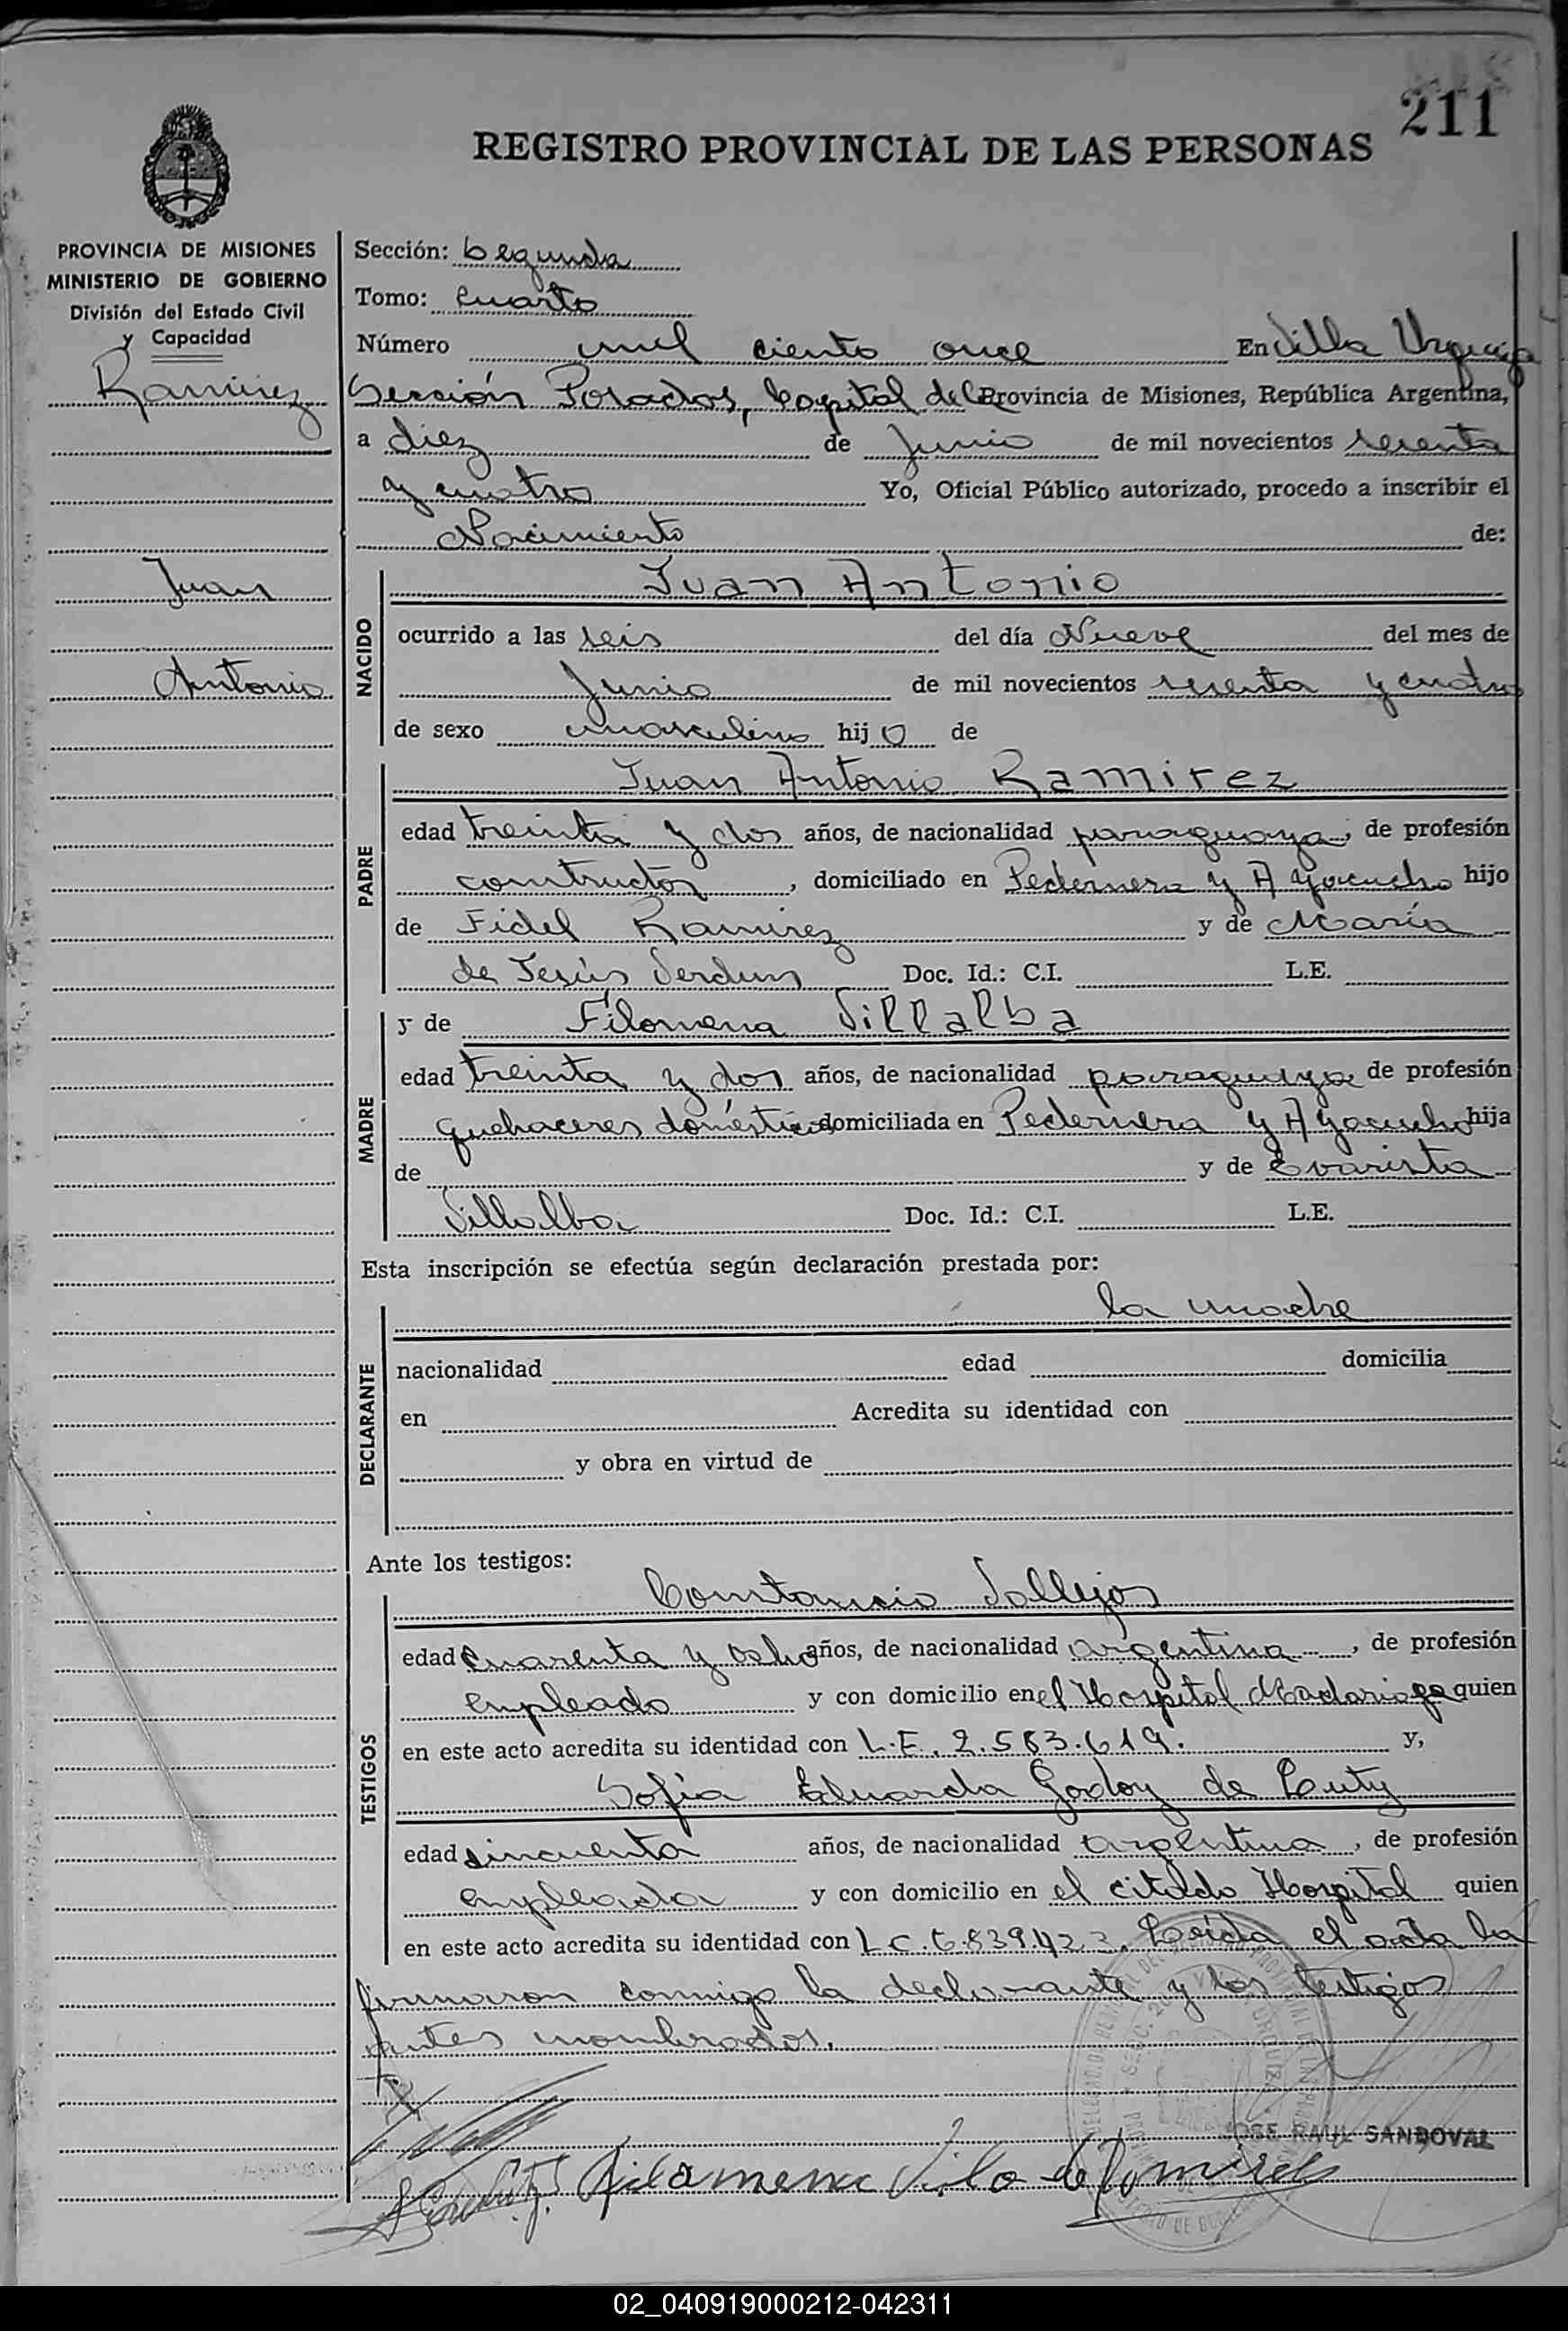 211
REGISTRO PROVINCIAL DE LAS PERSONAS
PROVINCIA DE MISIONES
MINISTERIO DE GOBIERNO
División del Estado Civil
y Capacidad
Ramirez
Juan
Antonio
Sección: Segunda
Tomo: Cuarto
Número mil ciento once En Villa Urquiza
Sección Posadas, Capital de la Provincia de Misiones, República Argentina,
a diez de Junio de mil novecientos sesenta
y cuatro Yo, Oficial Público autorizado, procedo a inscribir el
Nacimiento de:
NACIDO
Juan Antonio
ocurrido a las seis del día Nueve del mes de
Junio de mil novecientos sesenta y cuatro
de sexo masculino hijo de
PADRE
Juan Antonio Ramirez
edad treinta y dos años, de nacionalidad paraguaya, de profesión
contructor, domiciliado en Pedernera y Ayacucho hijo
de Fidel Ramirez y de María
de Jesús Verdun Doc. Id.: C.I. L.E.
MADRE
y de Filomena Villalba
edad treinta y dos años, de nacionalidad paraguaya de profesión
quehaceres domésticos domiciliada en Pedernera y Ayacucho hija
de y de Evarista
Villalba Doc. Id.: C.I. L.E.
Esta inscripción se efectúa según declaración prestada por:
DECLARANTE
la madre
nacionalidad edad domicilia
en Acredita su identidad con
y obra en virtud de
Ante los testigos:
TESTIGOS
Constancio Vallejos
edad cuarenta y ocho años, de nacionalidad argentina, de profesión
empleado y con domicilio en el Hospital Madariaga quien
en este acto acredita su identidad con L.E. 2.583.619. y,
Sofia Eduarda Godoy de
edad sincuenta años, de nacionalidad argentina, de profesión
empleada y con domicilio en el citado Hospital quien
en este acto acredita su identidad con L.C. 6.839.423. Leida el acta la
firmaron conmigo la declarante y los testigos
antes nombrados.
JOSE RAUL SANDOVAL
Filomena de Ramirez
02_040919000212-042311